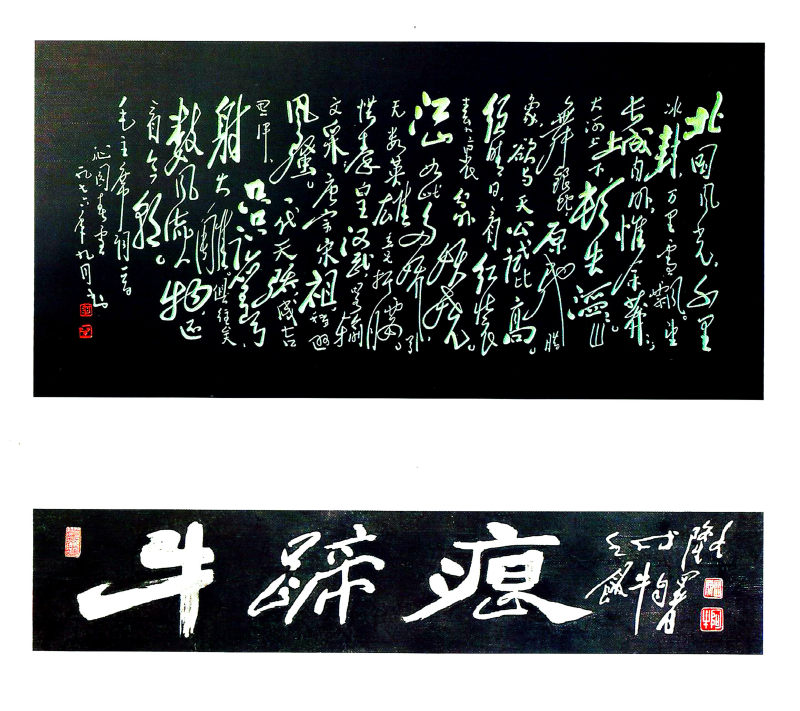 北国风光，千里
冰封，万里雪飘。望
长城内外，惟余莽莽；
大河上下，顿失滔滔。
舞银蛇，原驰腊
象，欲与天公试比高。
须晴日，看红装
素裹，分外妖娆。
江山如此多娇，引
无数英雄竞折腰。
惜秦皇汉武，略输
文采，唐宗宋祖，稍逊
风骚。一代天骄，成吉
思汗，只识弯弓
射大雕。俱往矣，
数风流人物，还
看今朝。
毛主席词一首
沁园春雪
一九七六年九月
牛蹄痕